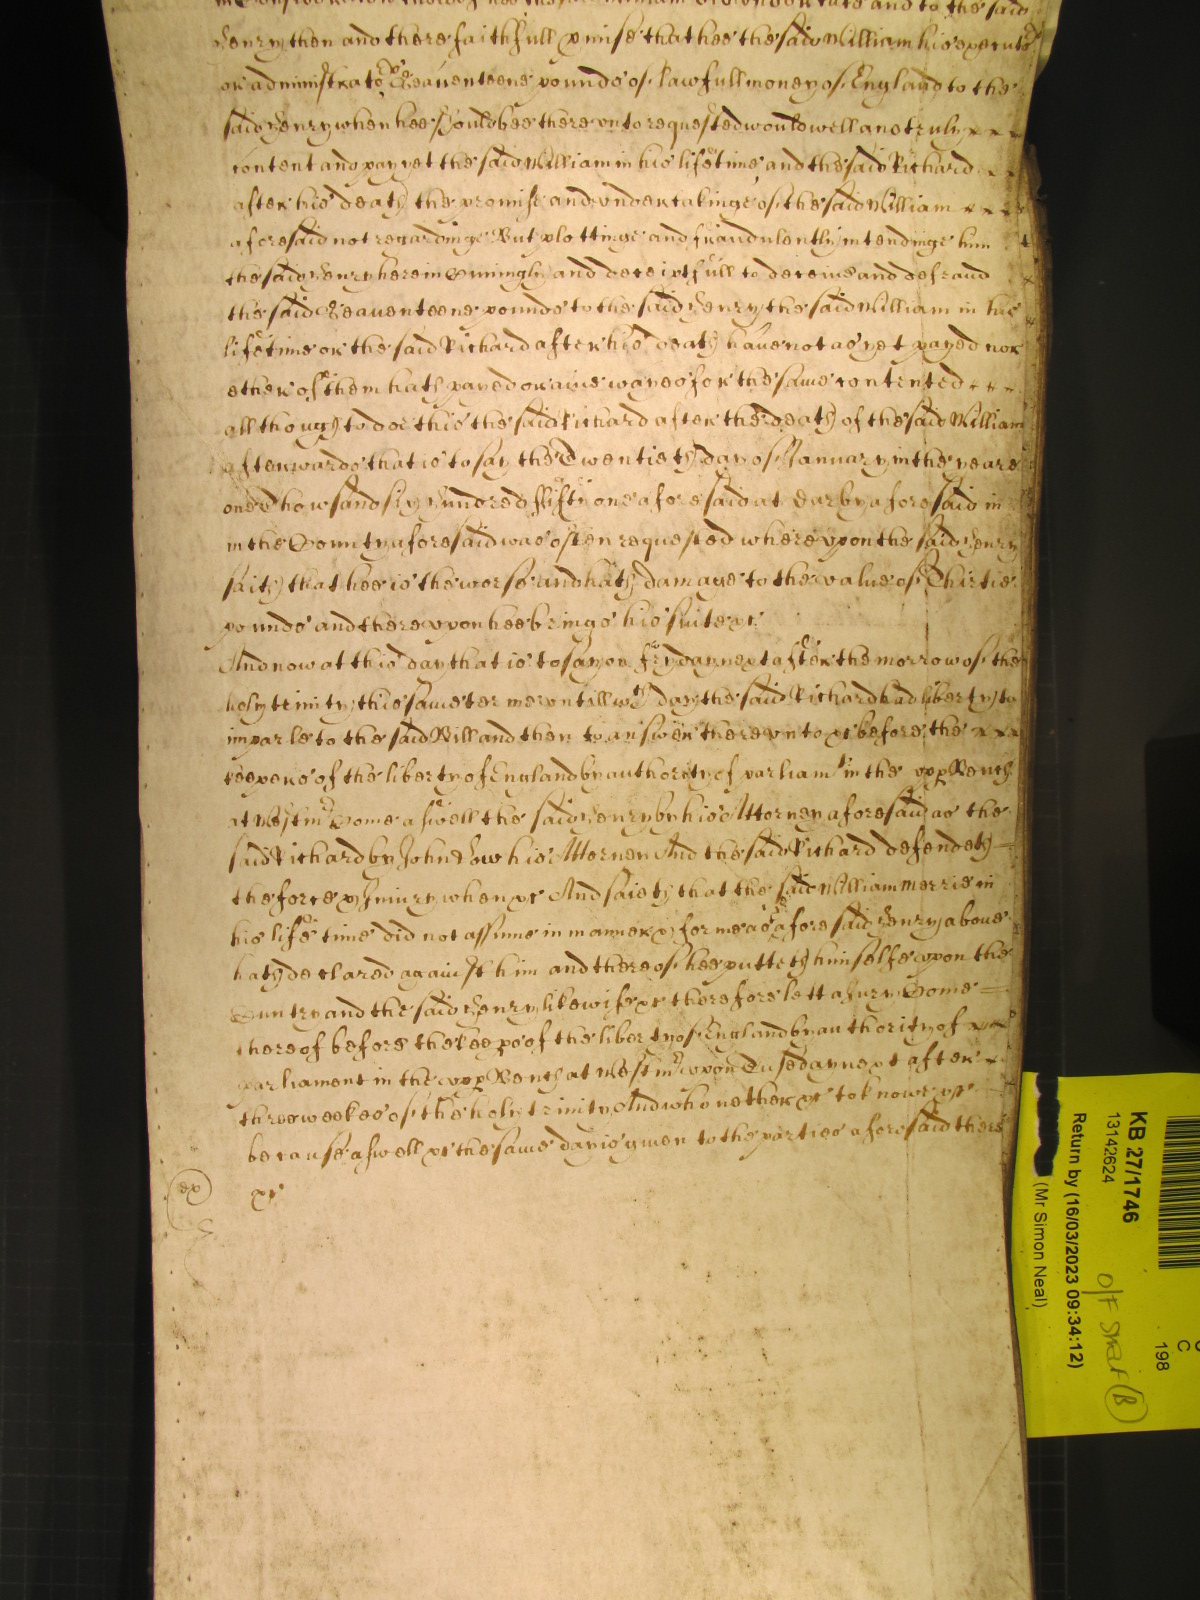 in consideracon thereof hee the said William did undertake and to the said
Henry then and there faithfull promise that hee the said William his executors
or administrators Seaventeene pounds of lawfull money of England to the
said Henry when hee should bee thereunto requested would well and truly x x x
content and pay yet the said William in his life time and the said Richard x x
after his death the promise and undertakinge of the said William x x x x
aforesaid not regardinge But plottinge and fraudulently intendinge him
the said Henry herein Cuningly and deceiptfull to deceive and defraud
the said Seaventeene pounds to the said Henry the said William in his
life time or the said Richard after his death have not as yet payed nor
ether of them hath payed or anie wayes for the same contented x x x
all though to doe this the said Richard after the death of the said William
afterwards that is to say the Twentieth day of January in the yeare
one Thowsand six hundred fifty one aforesaid at Darby aforesaid in
in the County aforesaid was often requested whereupon the said Henry
saith that hee is the worse and hath damage to the value of Thirtie
pounds and thereupon hee brings his suite &c
And now at this day that is to say on fryday next after the morrow of the
holy trinity this same terme untill wch day the said Richard had liberty to
imparle to the said Bill and then to answer thereunto &c before the x x x
keepers of the liberty of England by authority of parliamt in the upp Bench
at Westmr Come aswell the said Henry by his Attorney aforesaid as the
said Richard by John Low his Attorney And the said Richard defendeth
the force & Iniury when &c And saieth that the said William Merrie in
his life time did not assume in manner & forme as aforesaid Henry above
hath declared against him and thereof hee putteth himselfe upon the
Cuntry and the said Henry likewise &c therefore lett a Jury Come
thereof before the keeps of the liberty of England by authority of x x
parliament in the upp Bench at Westmr upon Tusday next after x
three weekes of the holy trinity And who nether &c to knowe &c
because aswell &c the same day is given to the parties aforesaid there
ex
&c
KB 27/1746
13142624
Return by (16/03/2023 09:34:12)
(Mr Simon Neal)
198
C